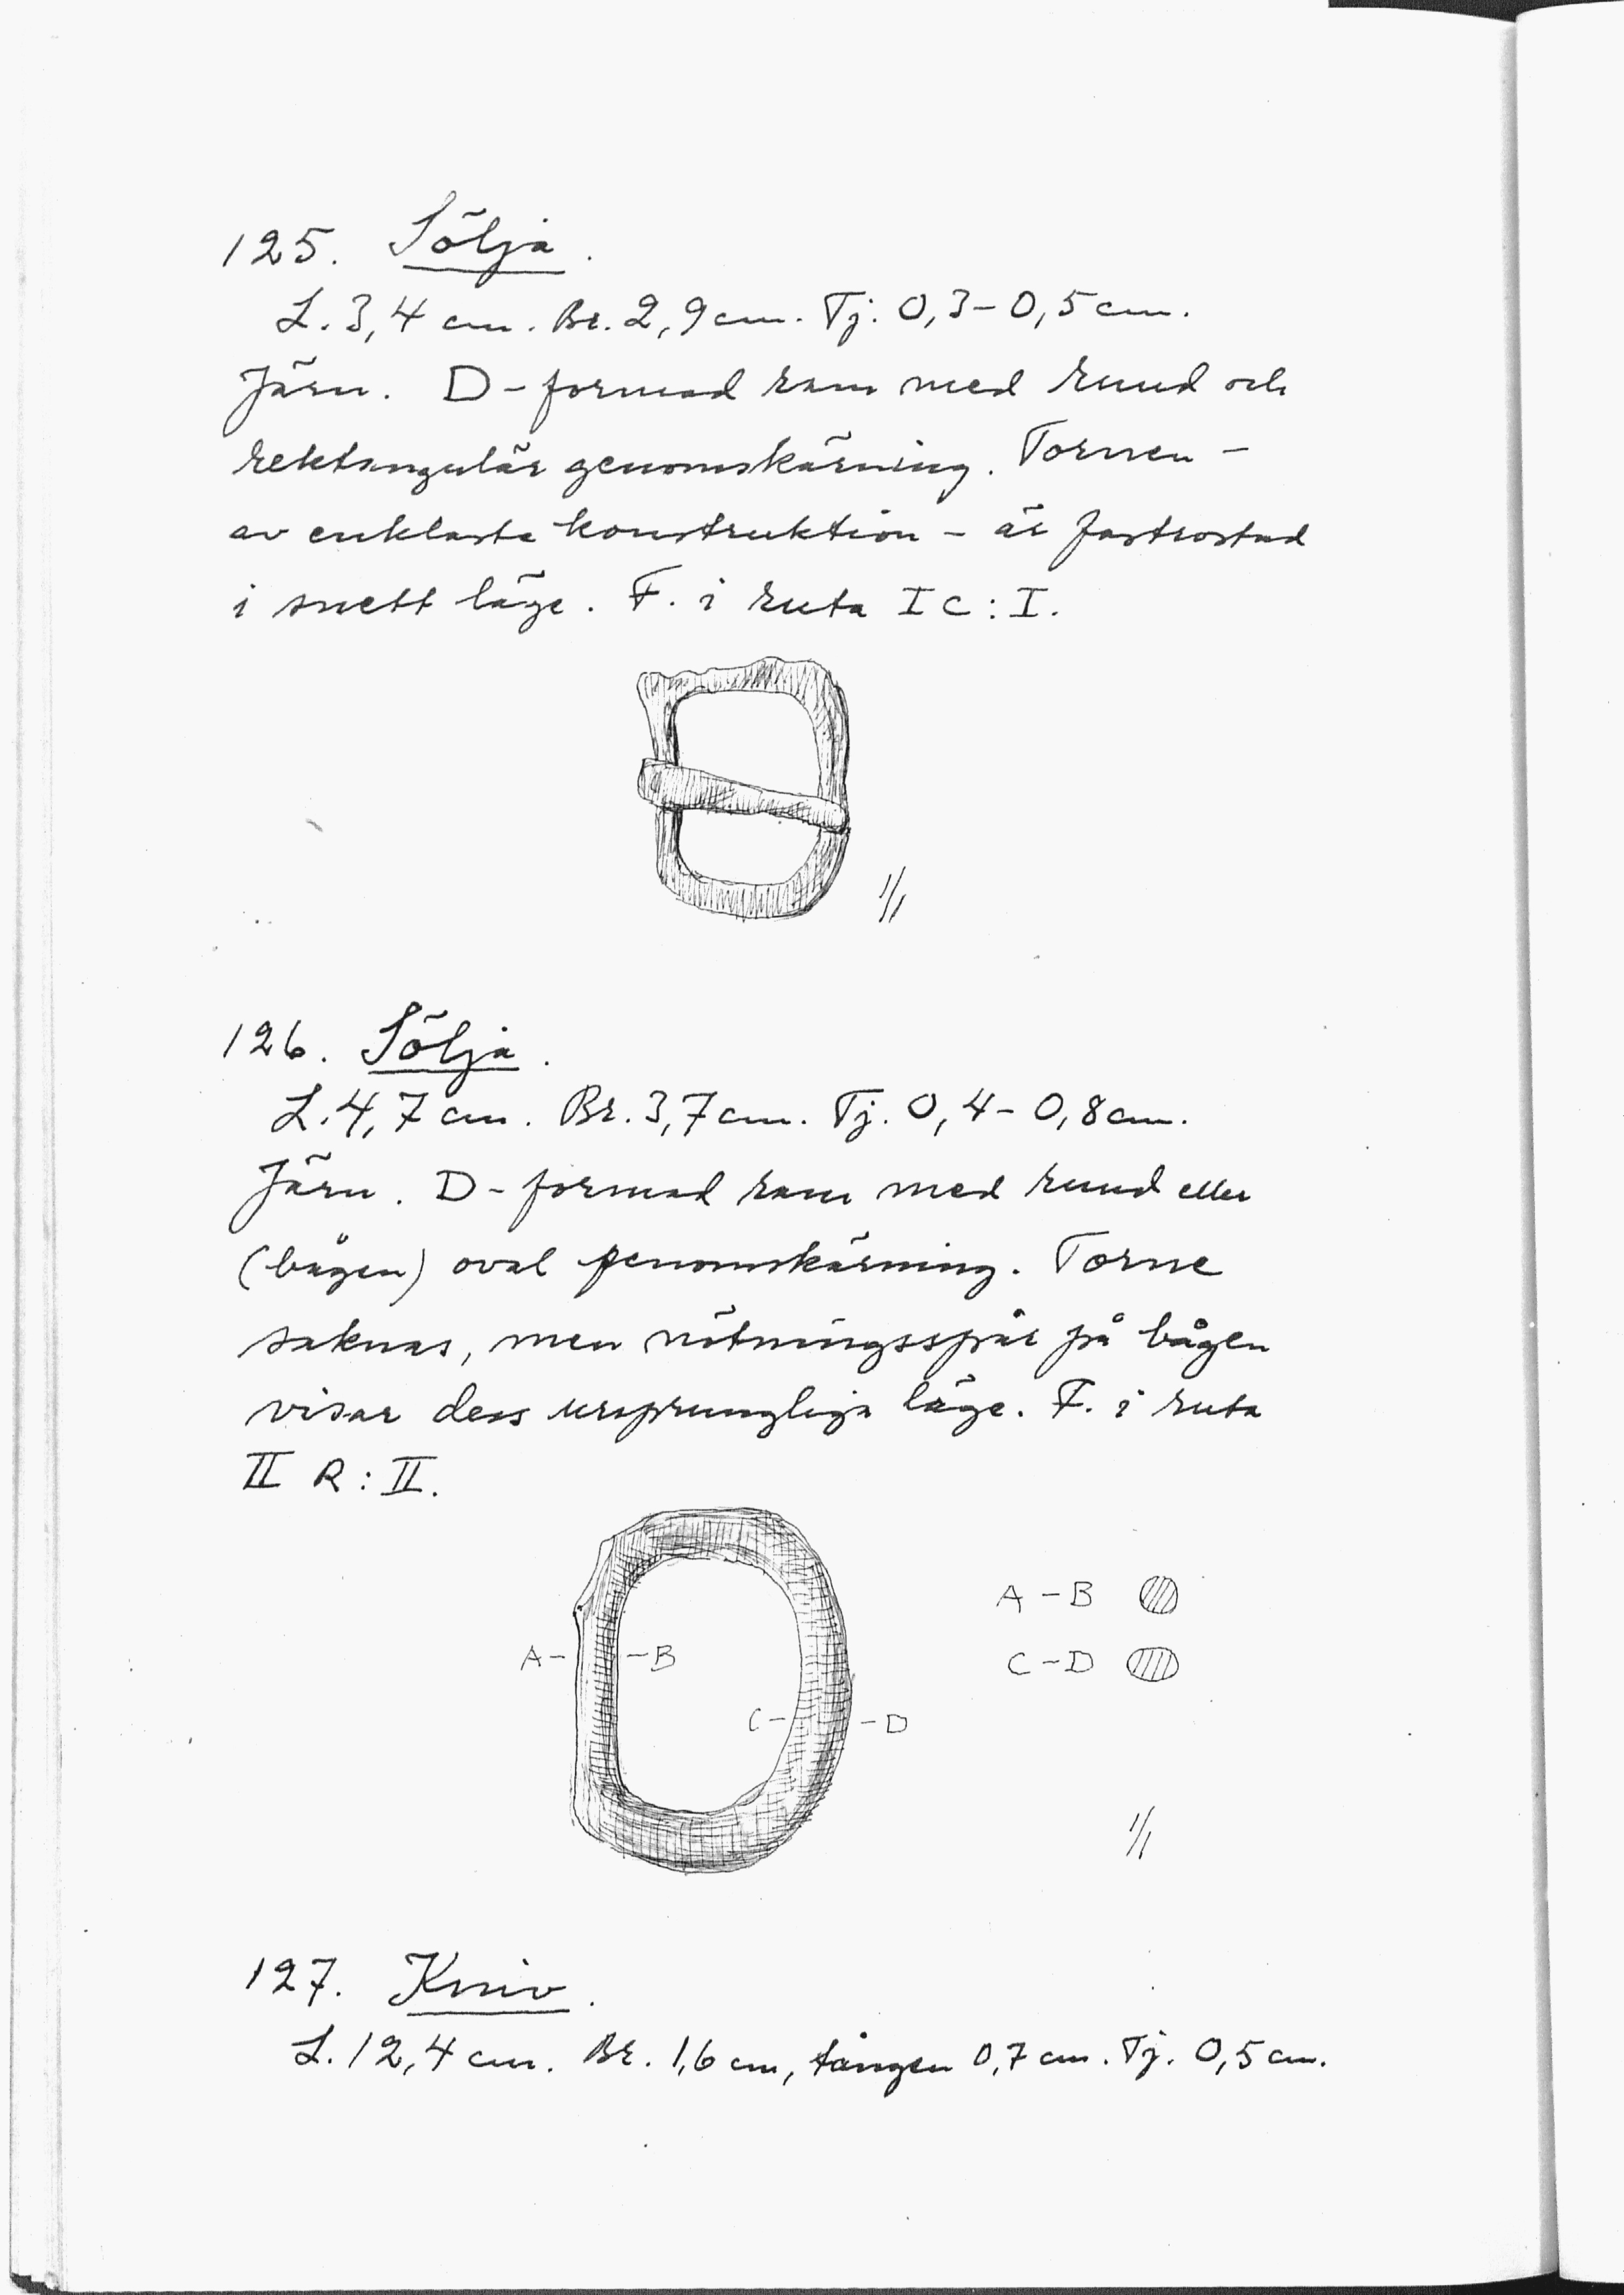 125. Sölja.
L. 3,4 cm. Br. 2,9 cm. Tj. 0,3-0,5 cm.
Järn. D-formad ram med rund och
rektangulär genomskärning. Tornen -
av enklaste konstruktion - är fastrostad
i snett läge. F. i ruta I C : I.
1/1
126. Sölja.
L. 4,7 cm. Br. 3,7 cm. Tj. 0,4-0,8 cm.
Järn. D-formad ram med rund eller
(bågen) oval genomskärning. Torne
saknas, men nötningsspår på bågen
visar dess ursprungliga läge. F. i ruta
II R : II.
A - B
C - D
A- -B
C- -D
1/1
127. Kniv.
L. 12,4 cm. Br. 1,6 cm, tången 0,7 cm. Tj. 0,5 cm.